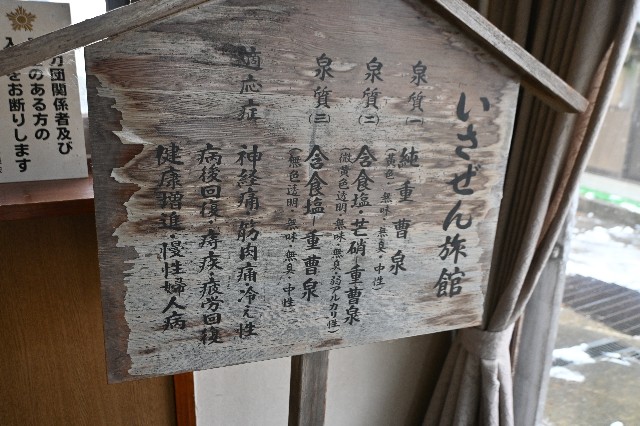 いさぜん旅館
泉質(一) 純重曹泉
(黄色・無味・無臭・中性)
泉質(二) 含食塩・芒硝-重曹泉
(微黄色透明・無味・無臭・弱アルカリ性)
泉質(三) 含食塩-重曹泉
(無色透明・無味・無臭・中性)
適応症 神経痛・筋肉痛・冷え性
病後回復・痔疾・疲労回復
健康増進・慢性婦人病
力団関係者及び
のある方の
をお断りします